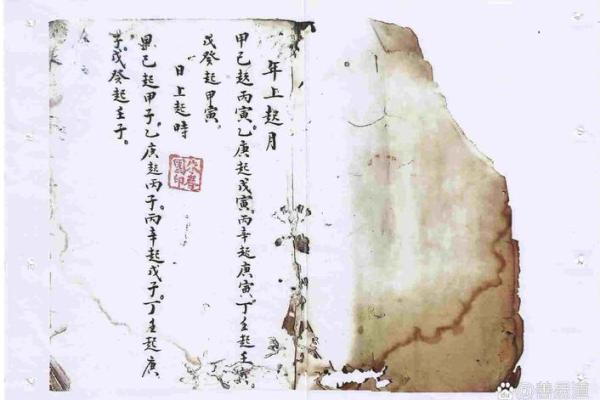 年上起月
甲己起丙寅。乙庚起戊寅。丙辛起庚寅。丁壬起壬寅。
戊癸起甲寅。
日上起時
甲己起甲子。乙庚起丙子。丙辛起戊子。丁壬起庚
子。戊癸起壬子。
@善易道